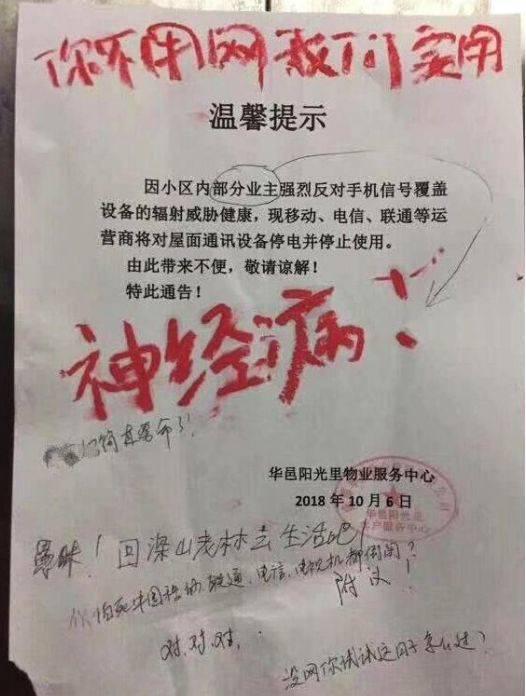 你不用网我们实用
温馨提示
因小区内部分业主强烈反对手机信号覆盖
设备的辐射威胁健康，现移动、电信、联通等运
营商将对屋面通讯设备停电并停止使用。
由此带来不便，敬请谅解！
特此通告！
神经病！
简直要命了！
华邑阳光里物业服务中心
2018年10月6日
华邑阳光里
客户服务中心
愚昧！回深山老林去生活吧！
电信、电视机都
附议！
对、对、对、
没网你试试这日子怎么过？